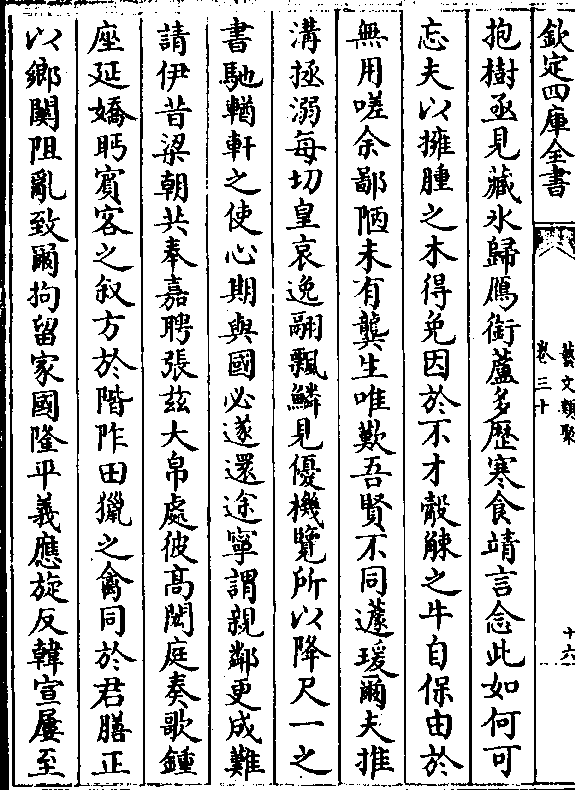 欽定四庫全書
藝文類聚
卷三十
十六
抱樹亟見藏氷歸鴈銜蘆多歴寒食靖言念此如何可
忘夫以擁腫之木得免因於不才觳觫之牛自保由於
無用嗟余鄙陋未有龔生唯歎吾賢不同蘧瑗爾夫推
溝拯溺每切皇哀逸翮飄鱗見優機覽所以降尺一之
書馳輶軒之使心期與國必遂還途寧謂親鄰更成難
請伊昔梁朝共奉嘉聘張兹大帛處彼高閎庭奏歌鍾
座延嬌眄賓客之叙方於階阼田獵之禽同於君膳正
以鄉關阻亂致爾拘留家國隆平義應旋反韓宣屢至